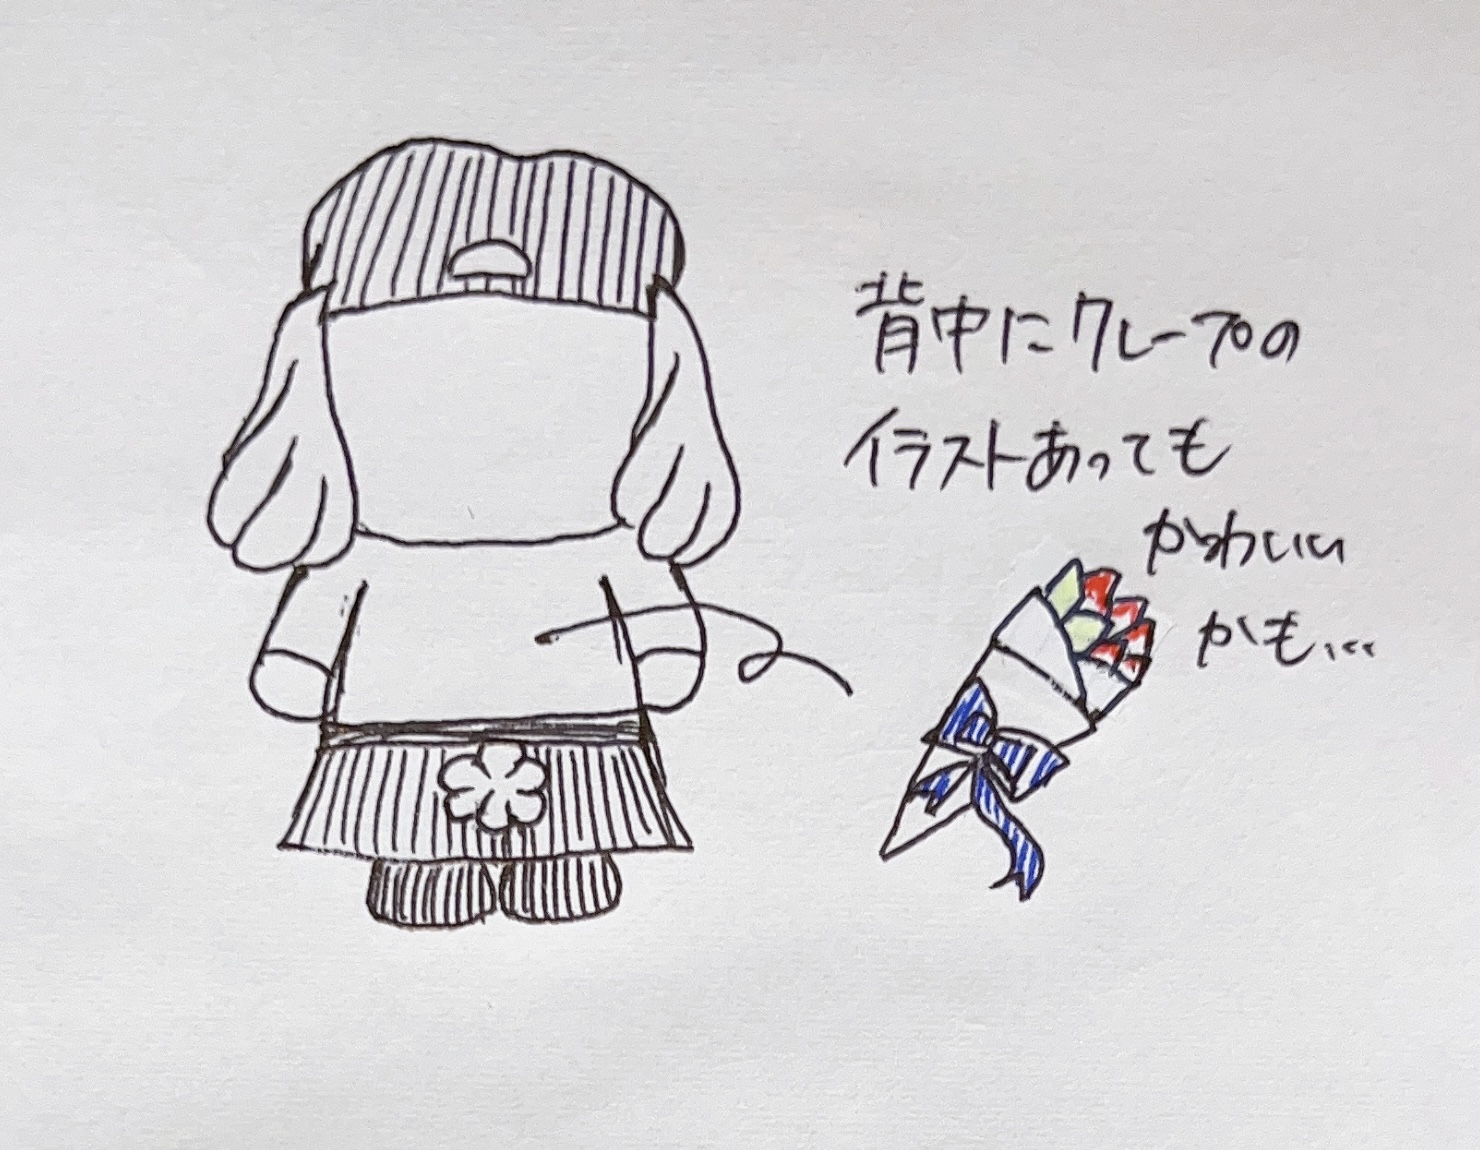 背中にクレープの
イラストあっても
かわいい
かも...